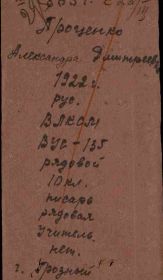 Проценко
Александра Дмитриевна
1922 г.
рус.
ВЛКСМ
ВУС-135
рядовой
10 кл.
писарь
рядовая
Учитель
нет.
г. Грозный